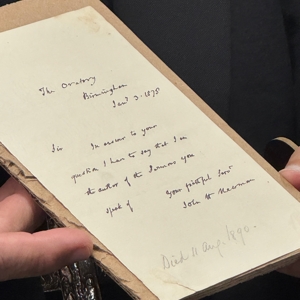 The Oratory
Birmingham
Jan. 3. 1878
Sir
In answer to your
question I have to say that I am
the author of the Sermons you
speak of
Your faithful Servt
John H Newman
Died 11 Aug. 1890.